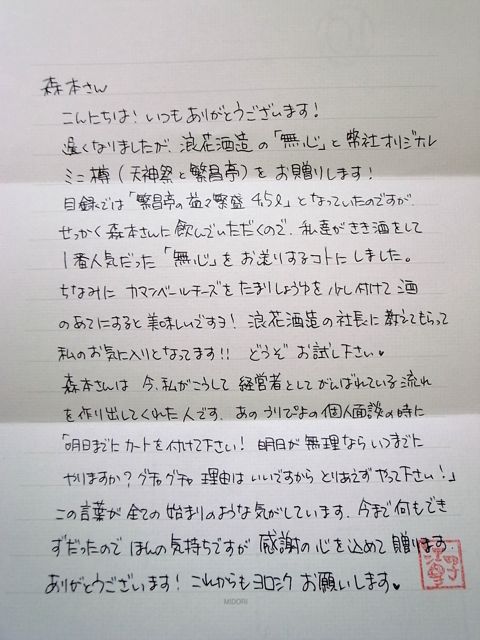 森本さん
こんにちは！いつもありがとうございます！
遅くなりましたが、浪花酒造の「無心」と弊社オリジナル
ミニ樽（天神祭と繁昌亭）をお贈りします！
目録では「繁昌亭の益々繁盛 4.5ℓ」となっていたのですが、
せっかく森本さんに飲んでいただくので、私達がきき酒をして
1番人気だった「無心」をお送りするコトにしました。
ちなみに カマンベールチーズをたまりしょうゆを少し付けて酒
のあてにすると美味しいですヨ！浪花酒造の社長に教えてもらって
私のお気に入りとなってます!! どうぞ お試し下さい♥
森本さんは 今、私がこうして 経営者としてがんばれている流れ
を作り出してくれた人です。あの うりぴよの個人面談の時に
「明日までにカートを付けて下さい！明日が無理ならいつまでに
やりますか？グチャグチャ理由はいいですから とりあえずやって下さい！」
この言葉が全ての始まりのような気がしています。今まで何もでき
ずだったので ほんの気持ちですが 感謝の心を込めて 贈ります
ありがとうございます！これからもヨロシク お願いします♥
MIDORI